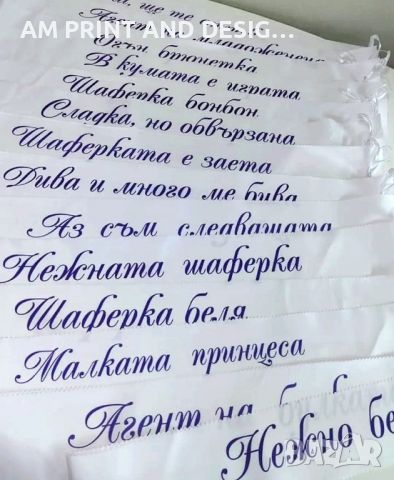 AM PRINT AND DESIG...
ще те
Агент на младоженеца
Огън брюнетка
В кумата е играта
Шаферка бонбон
Сладка, но обвързана
Шаферката е заета
Дива и много ме бива
Аз съм следващата
Нежната шаферка
Шаферка беля
Малката принцеса
Агент на булката
Нежно
BAZAR